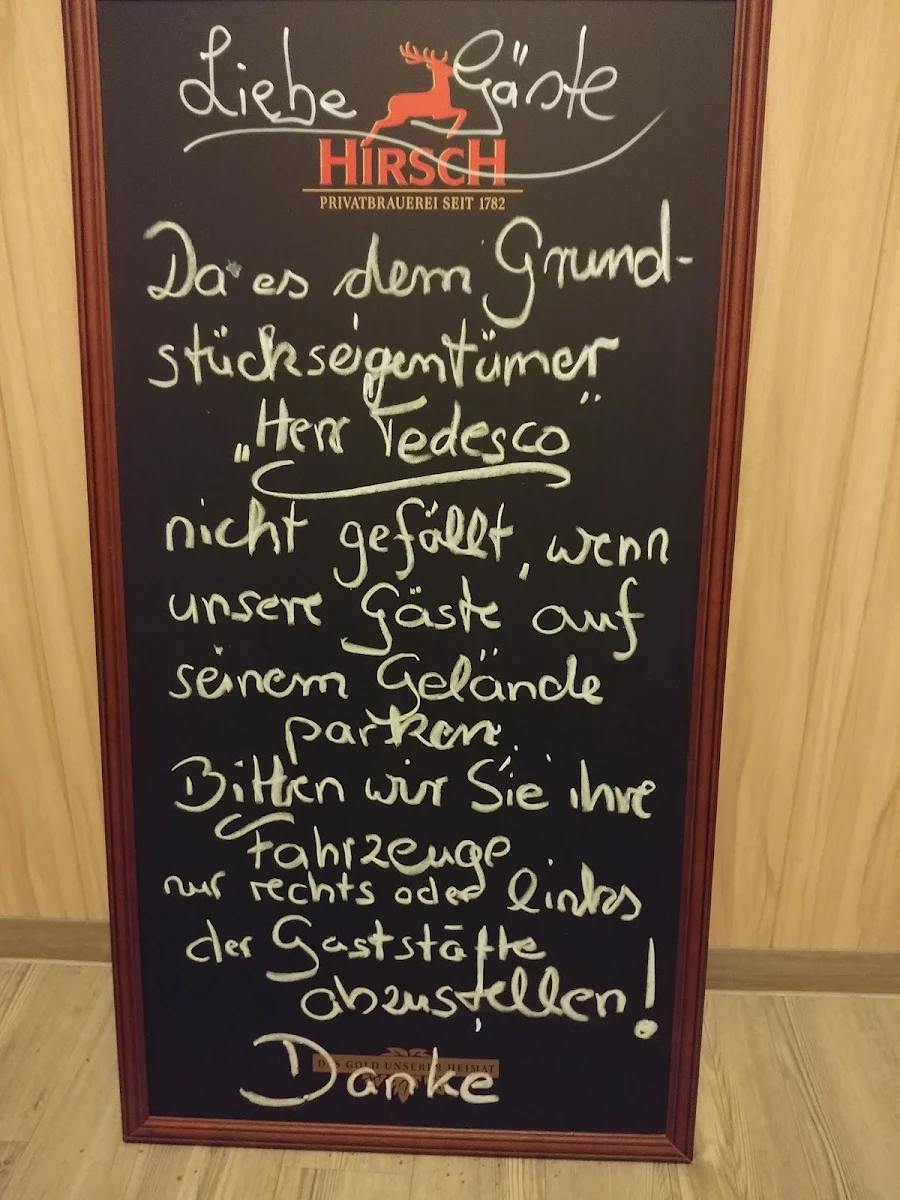 Liebe Gäste
HIRSCH
PRIVATBRAUEREI SEIT 1782
Da es dem Grund-
stückseigentümer
„Herr Tedesco"
nicht gefällt, wenn
unsere Gäste auf
seinem Gelände
parken.
Bitten wir Sie ihre
Fahrzeuge
nur rechts oder links
der Gaststätte
abzustellen!
DAS GOLD UNSERER HEIMAT
Danke